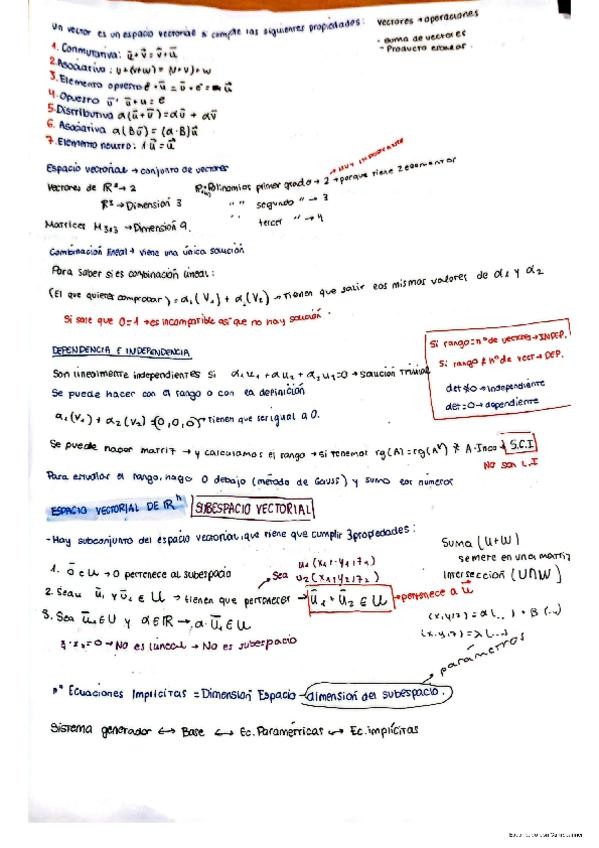 Un vector es un espacio vectorial si cumple las siguientes propiedades: vectores → operaciones
- suma de vectores
- Producto escalar.
1. Conmutativa: ū+v̄ = v̄+ū
2. Asociativa: u+(v+w) = (u+v)+w
3. Elemento opuesto
4. Opuesto
5. Distributiva α(ū+v̄) = αū + αv̄
6. Asociativa α(Bū) = (α·B)ū
7. Elemento neutro: 1ū = ū
Espacio vectorial → conjunto de vectores
MUY IMPORTANTE
Vectores de R² → 2 Polinomios primer grado → 2 → porque tiene 2 elementos
R³ → Dimensión 3 " " segundo " → 3
Matrices M3x3 → Dimensión 9. " " tercer " → 4
Combinación lineal → viene una única solución
Para saber si es combinación lineal:
(El que quieres comprobar) = α₁(V₁) + α₂(V₂) → Tienen que salir los mismos valores de α1 y α2
Si sale que 0=1 → es incompatible así que no hay solución.
DEPENDENCIA E INDEPENDENCIA
Son linealmente independientes si α₁u₁ + αu₂ + α₃u₃=0 → solución trivial
Se puede hacer con el rango o con la definición
α₁(v₁) + α₂(v₂) = (0,0,0) → Tienen que ser igual a 0.
Si rango = nº de vectores → INDEP.
Si rango ≠ nº de vect → DEP.
det ≠ 0 → independiente
det = 0 → dependiente
Se puede hacer matriz → y calculamos el rango → si tenemos rg(A) = rg(A*) ≠ nº Inco → S.C.I
No son L.I
Para estudiar el rango, hago 0 debajo (método de Gauss) y sumo los números
ESPACIO VECTORIAL DE Rⁿ SUBESPACIO VECTORIAL
- Hay subconjunto del espacio vectorial, que tiene que cumplir 3 propiedades:
1. ō ∈ U → 0 pertenece al subespacio
Sea u₁(x₁,y₁,z₁)
u₂(x₂,y₂,z₂)
2. Sean ū₁ y ū₂ ∈ U → tienen que pertenecer → ū₁ + ū₂ ∈ U → pertenece a ū
3. Sea ū₁ ∈ U y α ∈ R → α·ū₁ ∈ U
=0 → No es lineal → No es subespacio
Suma (U+W)
se mere en una matriz
Intersección (U∩W)
(x,y,z) = α(...) + B(...)
(x,y,z) = λ(...)
parámetros
nº Ecuaciones Implícitas = Dimensión Espacio - dimensión del subespacio.
Sistema generador ↔ Base ↔ Ec. Paramétricas ↔ Ec. implícitas